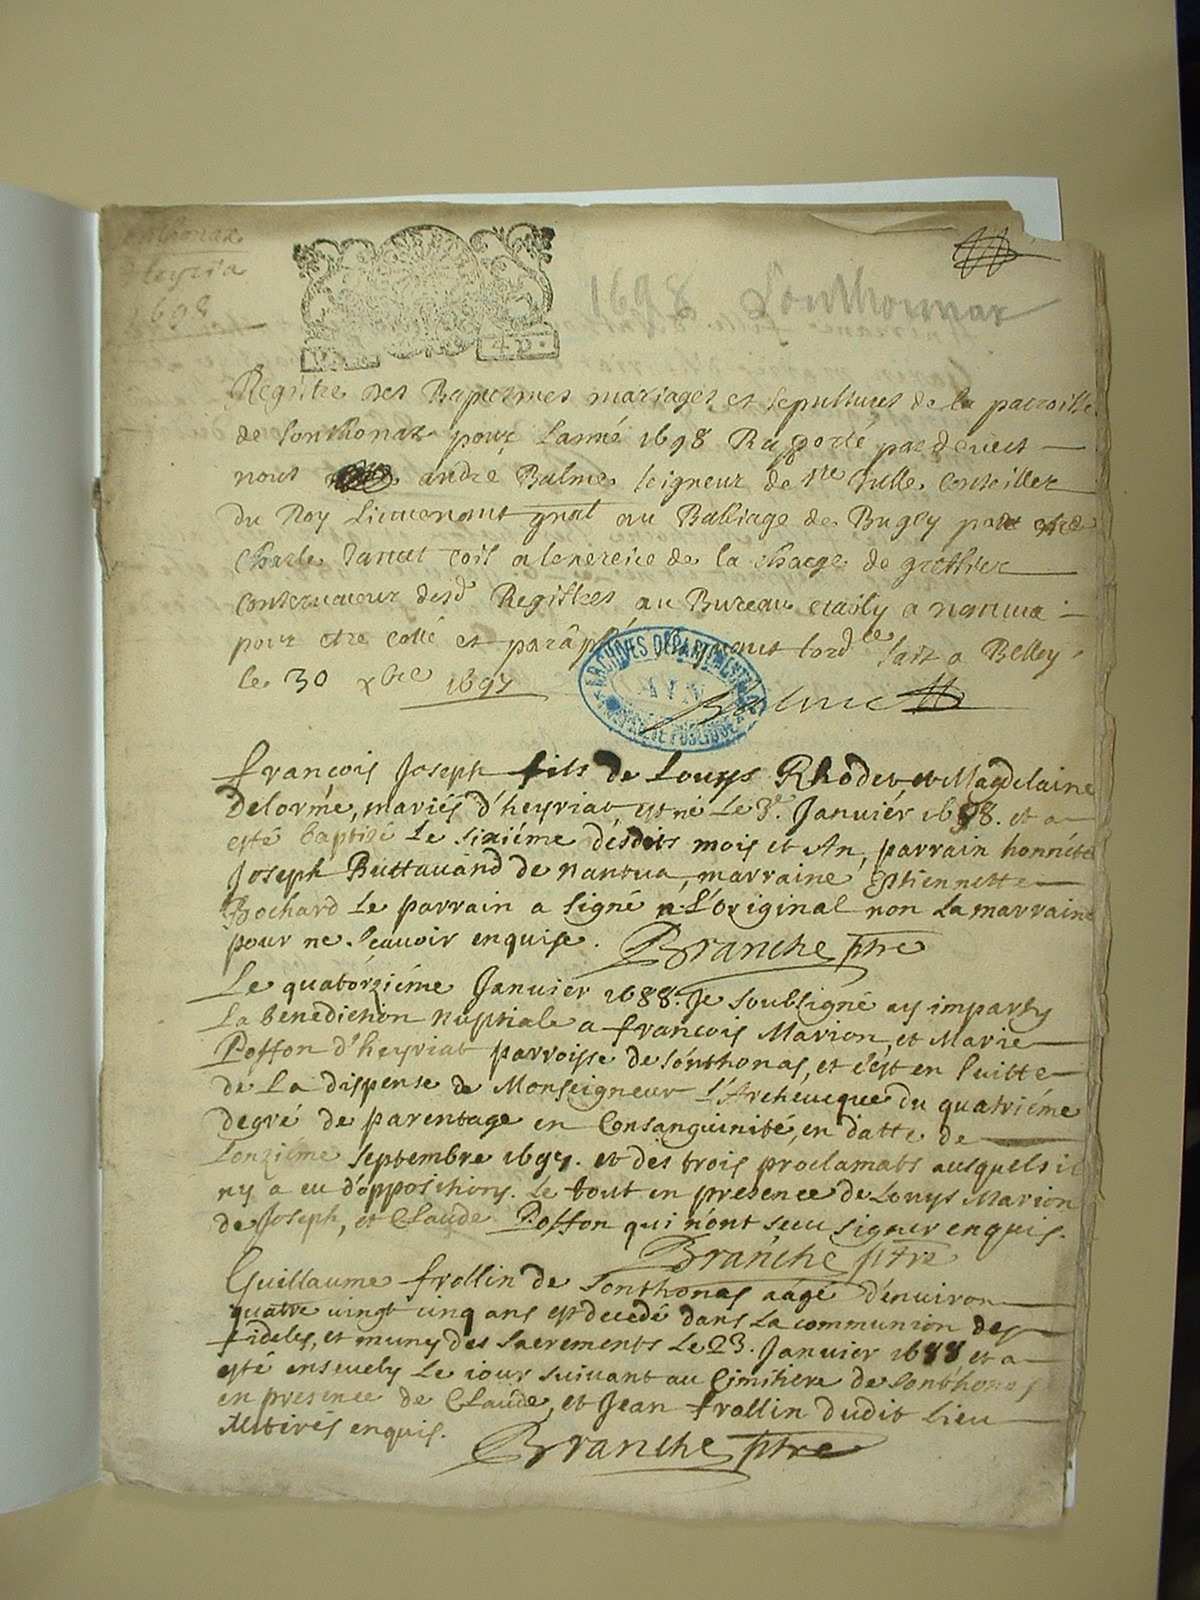 Heyria
1698
1698 Sonthonnax
4 D.
Registre des Baptesmes mariages et sepultures de la parroisse
de Sonthonax pour Lanné 1698 Raporté pardevect
nous andré Balme seigneur de Ste Julle conseiller
du Roy Lieutenant gnal au Balliage de Bugey
Charle cois a lexereice de la charge de greffier
conservateur desd Registres au Bureau estably a nantua
pour etre cotté et paraphé suivant lord ce fait a Belley
le 30 xbre 1697
ARCHIVES DÉPARTEMENTALES
AIN
Balme
françois Joseph fils de Louys Rhodet et Magdelaine
Delorme, mariés d'heyriat est né Le 3e. Janvier 1698. et a
esté baptisé Le sixiéme desdits mois et An, parrain honnéte
Joseph Buttavand de Nantua, marraine Estiennette
Bochard Le parrain a signé a L'Original non La marraine
pour ne Scavoir enquise. Branche ptre
Le quatorziéme Janvier 1688. Je soubsigné ay imparty
La benediction Nuptiale a françois Marion, et Marie
Poffon d'heyriat parroisse de Sonthonas, et c'est en suitte
de La dispense de Monseigneur L'Archeveque du quatriéme
degré de parentage en Consanguinité, en datte de
Lonziéme septembre 1697. et des trois proclamats ausquels il
ny a eu d'oppositions. Le tout en presence de Louys Marion
de Joseph, et Claude Poffon qui n'ont sceu signer enquis.
Branche ptre
Guillaume frollin de Sonthonas aagé d'environ
quatre vingt cinq ans est decedé dans La communion des
fideles, et muny des sacrements Le 23. Janvier 1688 et a
esté ensevely Le iour suivant au Cimitiere de Sonthonas
en presence de Claude, et Jean frollin dudit Lieu
illitirés enquis. Branche ptre